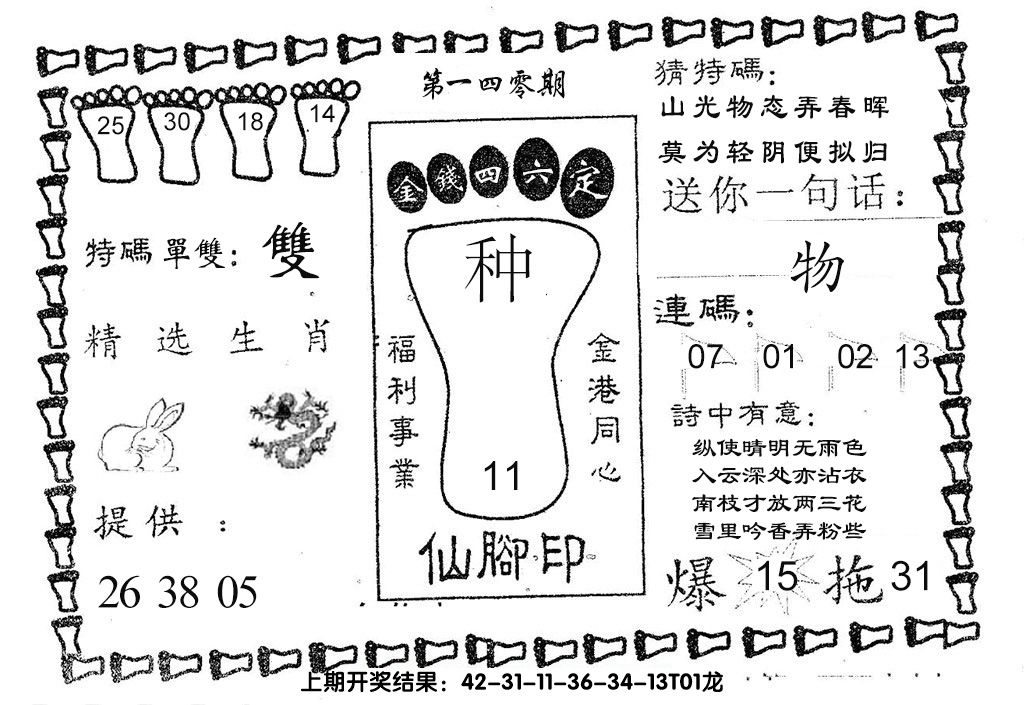 第一四零期
25 30 18 14
特碼單雙：雙
精选生肖
提供：
26 38 05
金錢四六定
种
福利事業
金港同心
11
仙腳印
猜特碼：
山光物态弄春晖
莫为轻阴便拟归
送你一句话：
物
連碼：
07 01 02 13
詩中有意：
纵使晴明无雨色
入云深处亦沾衣
南枝才放两三花
雪里吟香弄粉些
爆 15 拖 31
上期开奖结果：42-31-11-36-34-13T01龙